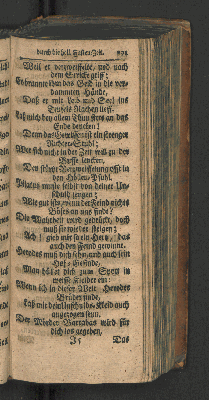 durch die heil. Fasten-Zeit. 201
Weil er verzweiffelte, und nach
dem Stricke griff;
Es brannte ihm das Geld in die ver-
dammten Hände,
Daß er mit Leib und Seel ins
Teufels Rachen lieff.
Laß mich bey allem Thun stets an das
Ende dencken!
Denn das Gewissen ist ein strenger
Richter-Stuhl;
Wer sich nicht in der Zeit will zu der
Busse lencken,
Den stürzt Verzweiffelung offt in
den Höllen-Pfuhl.
Pilatus muste selbst von deiner Un-
schuld zeugen;
Wie gut ists, wenn der Feind nichts
Böses an uns findt!
Die Wahrheit wird gedrückt, doch
muß sie wieder steigen;
Ach! gieb mir so ein Herz, das
auch den Feind gewinnt.
Herodes muß dich sehn, und auch sein
Hof-Gesinde,
Man höhnt dich zum Spott in
weisse Kleider ein:
Wenn ich in dieser Welt Herodes
Brüder finde,
Laß mit dem Unschulds-Kleid auch
angezogen seyn.
Der Mörder Barrabas wird für
dich los gegeben,
J 5 Das